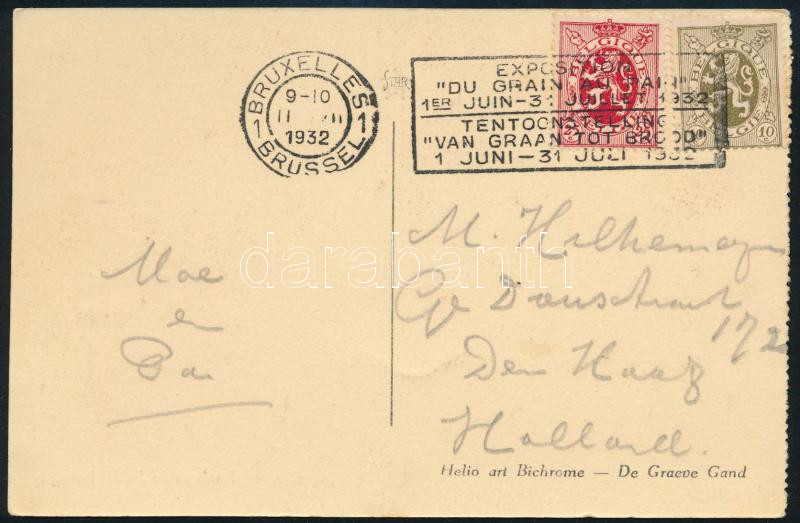 BRUXELLES
1 1
9-10
11 VII
1932
BRUSSEL
EXPOSITION
"DU GRAIN AU PAIN"
1ER JUIN-31 JUILLET 1932
TENTOONSTELLING
"VAN GRAAN TOT BROOD"
1 JUNI-31 JULI 1932
BELGIQUE
BELGIQUE
BELGIË 10
Moe
en
Pa
M.
172
Den Haag
Holland.
darabanth
Helio art Bichrome — De Graeve Gand